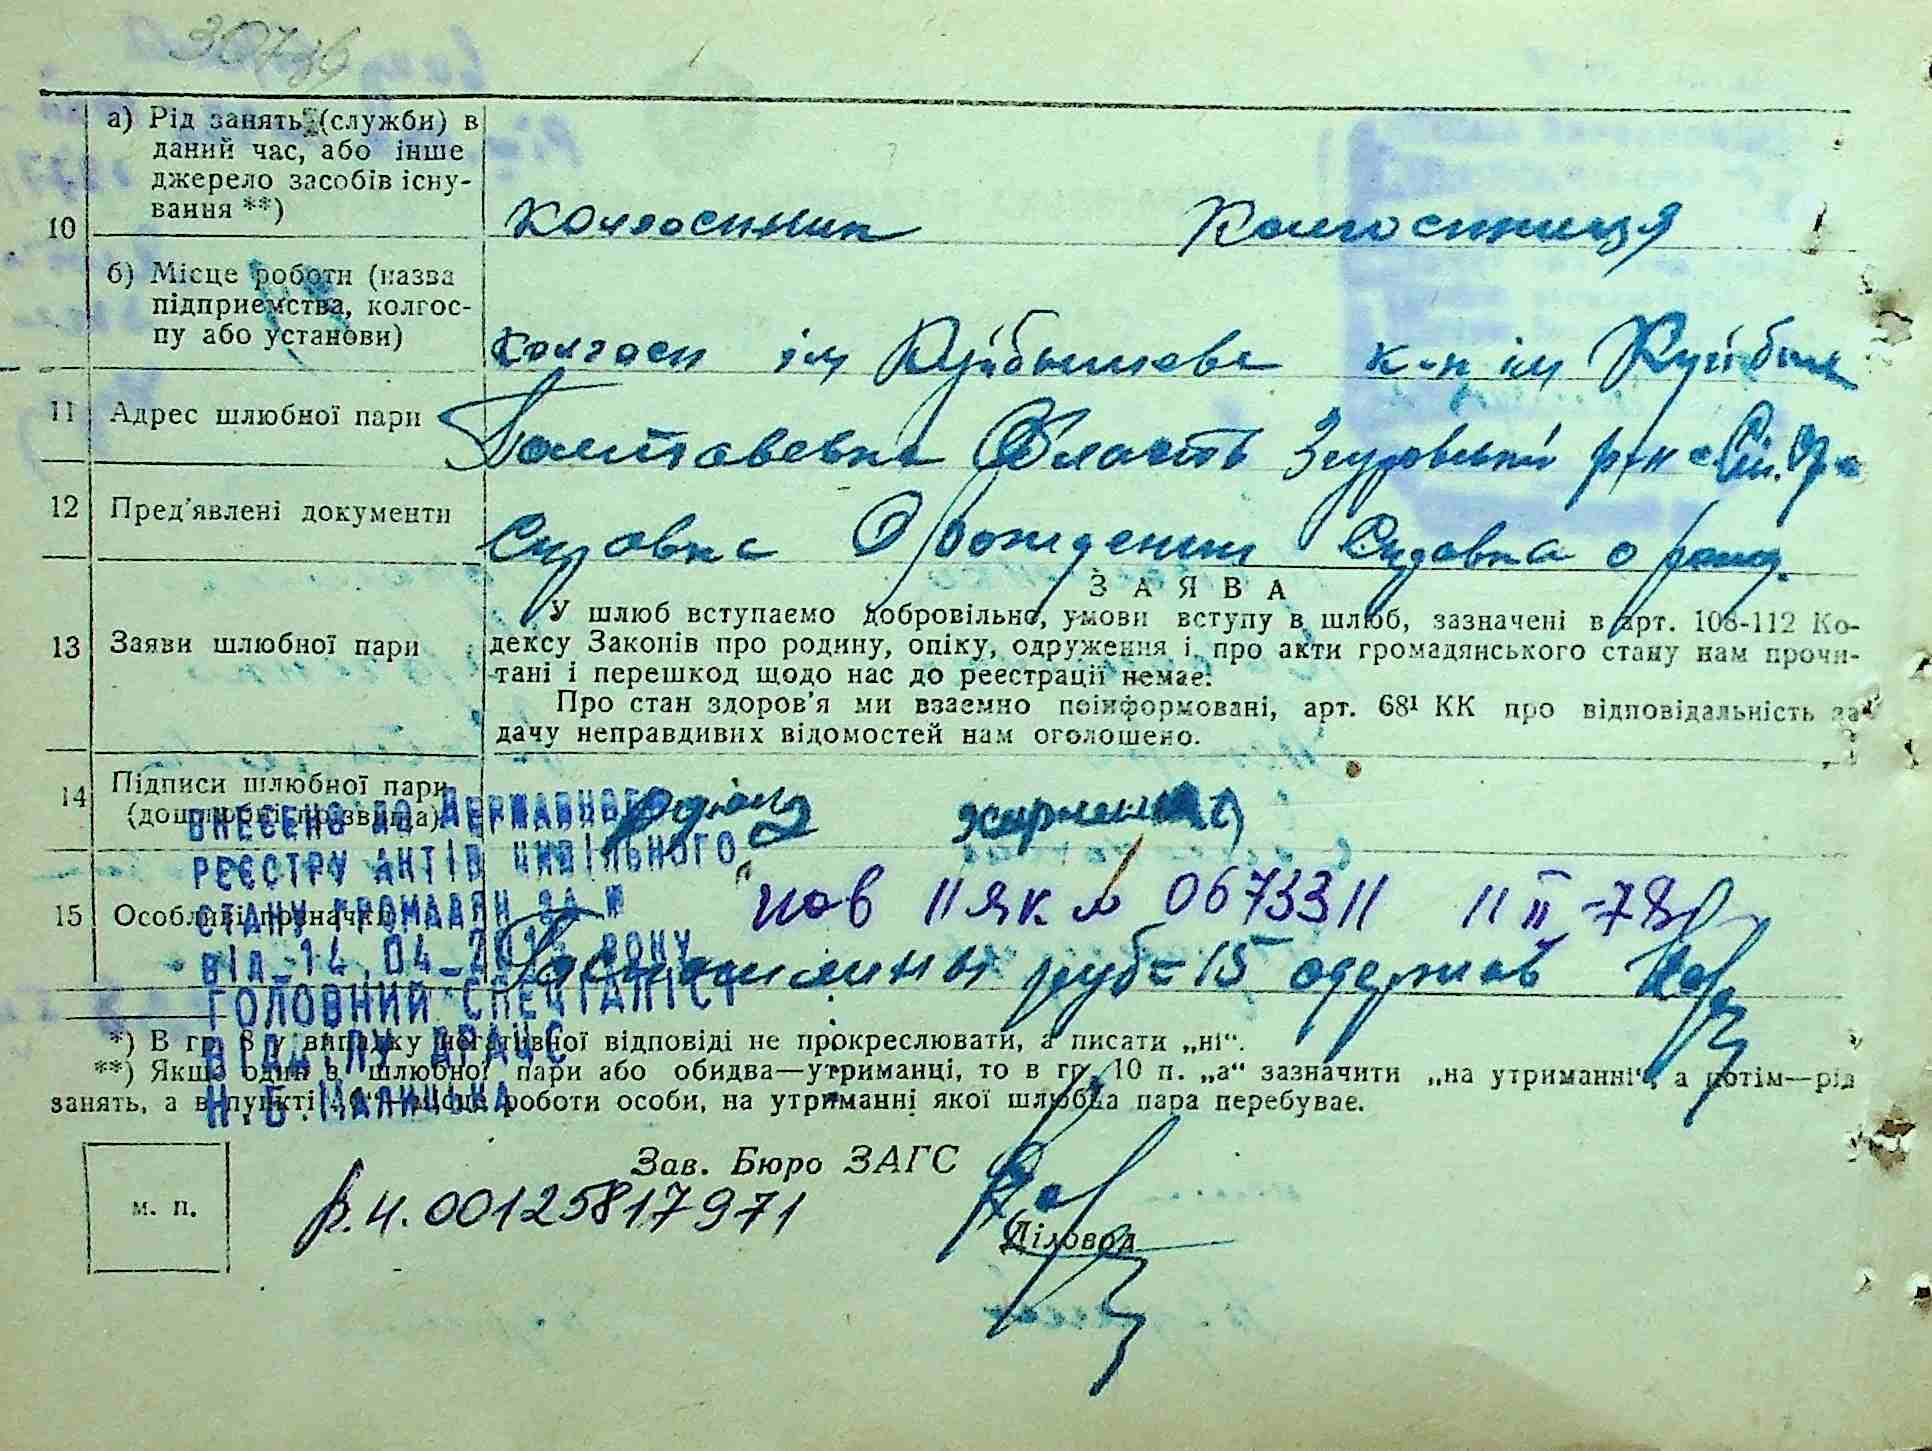 а) Рід занять (служби) в
даний час, або інше
джерело засобів існу-
вання **)
10
колгоспник Колгоспниця
б) Місце роботи (назва
підприємства, колгос-
пу або установи)
колгосп ім Куйбышева к-п ім Куйбыш
11 Адрес шлюбної пари
Полтавська Область Згуровський р-н
12 Пред'явлені документи
Справка О рождении Справка о рожд.
ЗАЯВА
13 Заяви шлюбної пари
У шлюб вступаємо добровільно, умови вступу в шлюб, зазначені в арт. 108-112 Ко-
дексу Законів про родину, опіку, одруження і про акти громадянського стану нам прочи-
тані і перешкод щодо нас до реєстрації немає.
Про стан здоров'я ми взаємно поінформовані, арт. 68¹ КК про відповідальність за
дачу неправдивих відомостей нам оголошено.
14 Підписи шлюбної пари
(дошлюбні прізвища)
ВНЕСЕНО ДО ДЕРЖАВНОГО
РЕЄСТРУ АКТІВ ЦИВІЛЬНОГО
СТАНУ ГРОМАДЯН ЗА №
ВІД 14.04.20 РОКУ
ГОЛОВНИЙ СПЕЦІАЛІСТ
ВІДДІЛУ ДРАЦС
15 Особливі позначки
пов II ЯК № 0673311 11 II-78р
руб=15 одержав
*) В гр. 8 у випадку негативної відповіді не прокреслювати, а писати „ні“.
**) Якщо один з шлюбної пари або обидва—утриманці, то в гр. 10 п. „а“ зазначити „на утриманні“, а потім—рід
занять, а в пункті „б“—місце роботи особи, на утриманні якої шлюбна пара перебуває.
Зав. Бюро ЗАГС
м. п.
р.н. 00125817971
Діловод